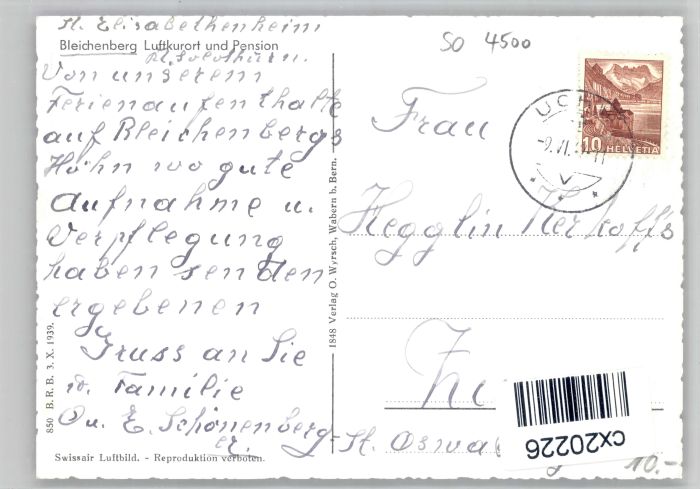 St. Elisabethenheim
Bleichenberg Luftkurort und Pension
Kt. Solothurn.
Von unserem
Ferienaufenthalte
auf Bleichenbergs
Höhn wo gute
Aufnahme u.
Verpflegung
haben senden
ergebenen
Gruss an Sie
w. Familie
O u. E. Schönenberg-
er.
Swissair Luftbild. - Reproduktion verboten.
850 B. R. B. 3. X. 1939.
1848 Verlag O. Wyrsch, Wabern b. Bern.
SO 4500
10 HELVETIA
Frau
Hegglin
St. Oswa
cx20226
10.-